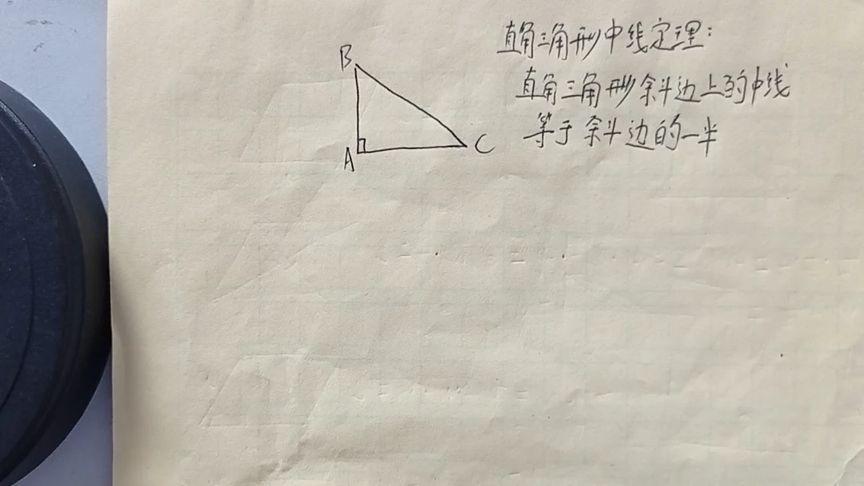 直角三角形中线定理:
直角三角形斜边上的中线
等于斜边的一半
B
A
C